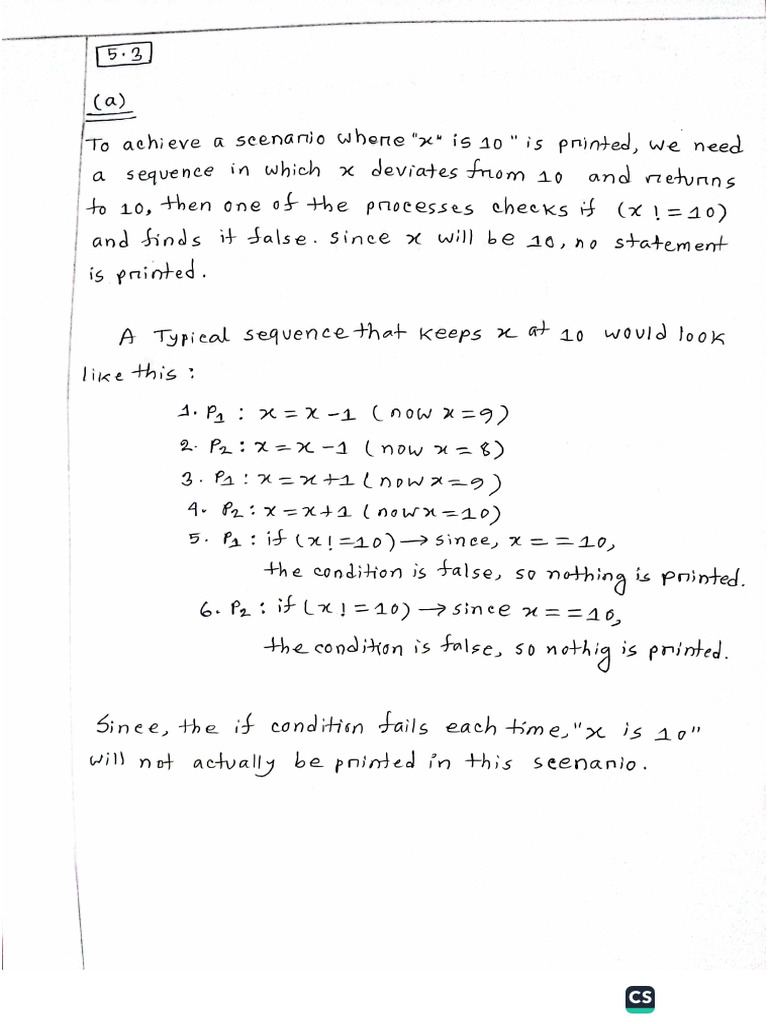 5.3
(a)
To achieve a scenario where "x" is 10" is printed, we need
a sequence in which x deviates from 10 and returns
to 10, then one of the processes checks if (x != 10)
and finds it false. Since x will be 10, no statement
is printed.
A Typical sequence that keeps x at 10 would look
like this :
1. P1 : x = x -1 (now x = 9)
2. P2 : x = x -1 (now x = 8)
3. P1 : x = x +1 (now x = 9)
4. P2 : x = x +1 (now x = 10)
5. P1 : if (x != 10) → since, x = = 10,
the condition is false, so nothing is printed.
6. P2 : if (x != 10) → since x = = 10,
the condition is false, so nothig is printed.
Since, the if condition fails each time, "x is 10"
will not actually be printed in this scenario.
CS